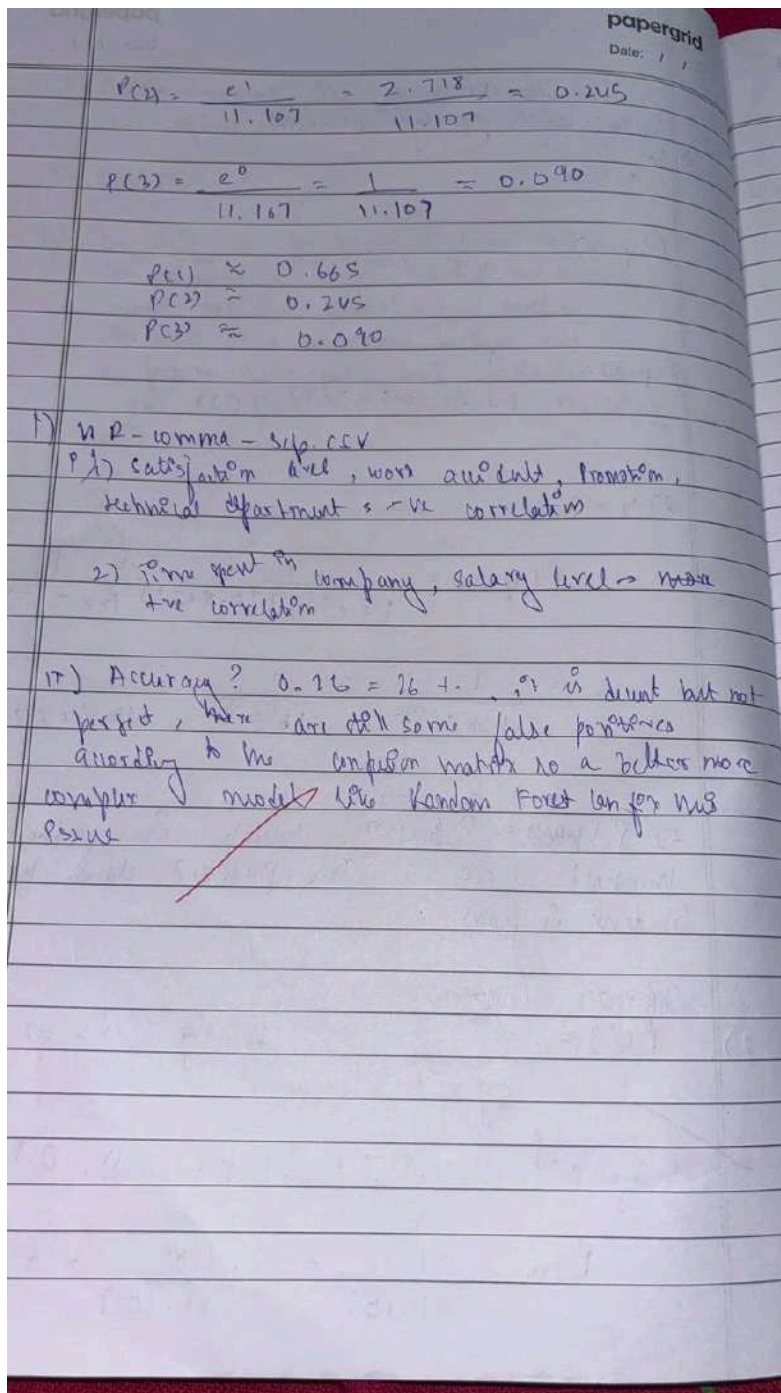 papergrid
Date: / /
P(2) = e^1 / 11.107 = 2.718 / 11.107 ≈ 0.245
P(3) = e^0 / 11.107 = 1 / 11.107 ≈ 0.090
P(1) ≈ 0.665
P(2) ≈ 0.245
P(3) ≈ 0.090
1) HR-comma-sep.csv
1) satisfaction level, work accident, Promotion,
technical department : -ve correlation
2) Time spent in company, salary level →
+ve correlation
Accuracy? 0.76 = 76 %. it is decent but not
perfect, there are still some false positives
according to the confusion matrix so a better more
complex model like Random Forest can fix this
issue